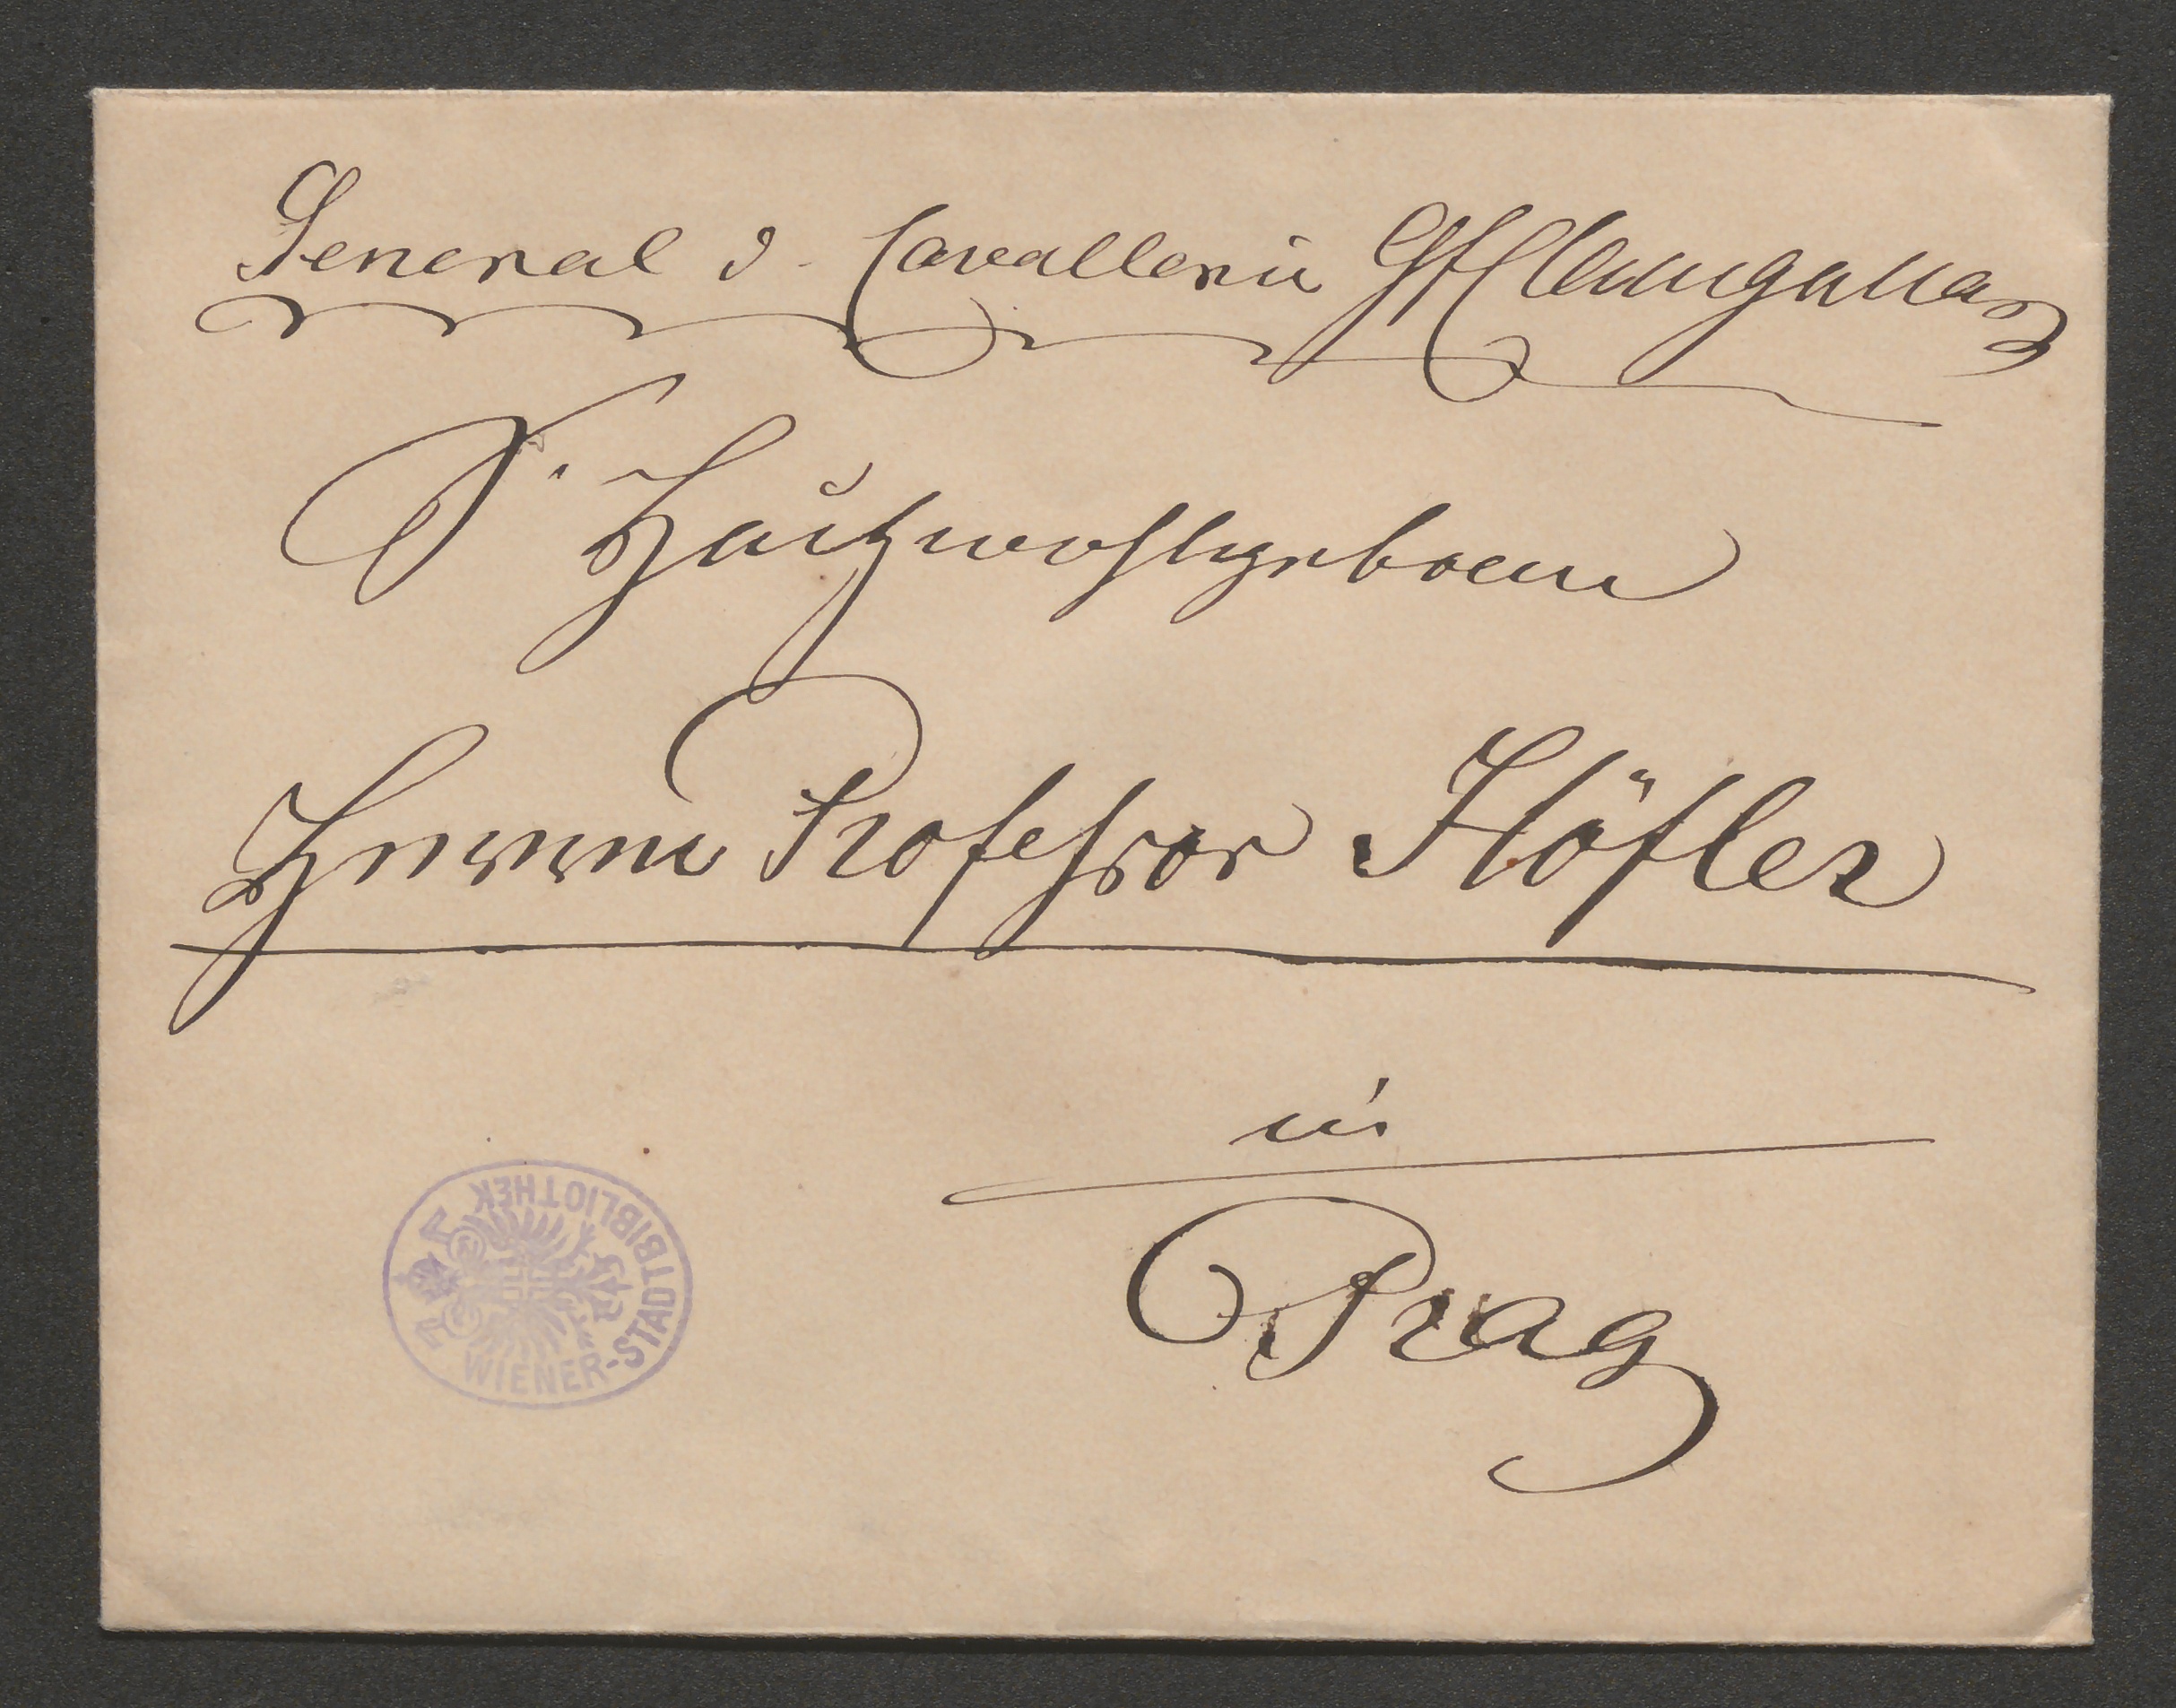 General d. Cavallerie Gf Clam Gallas
Sr Hochwohlgeboren
Herrn Professor Höfler
in
Prag
WIENER-STADTBIBLIOTHEK